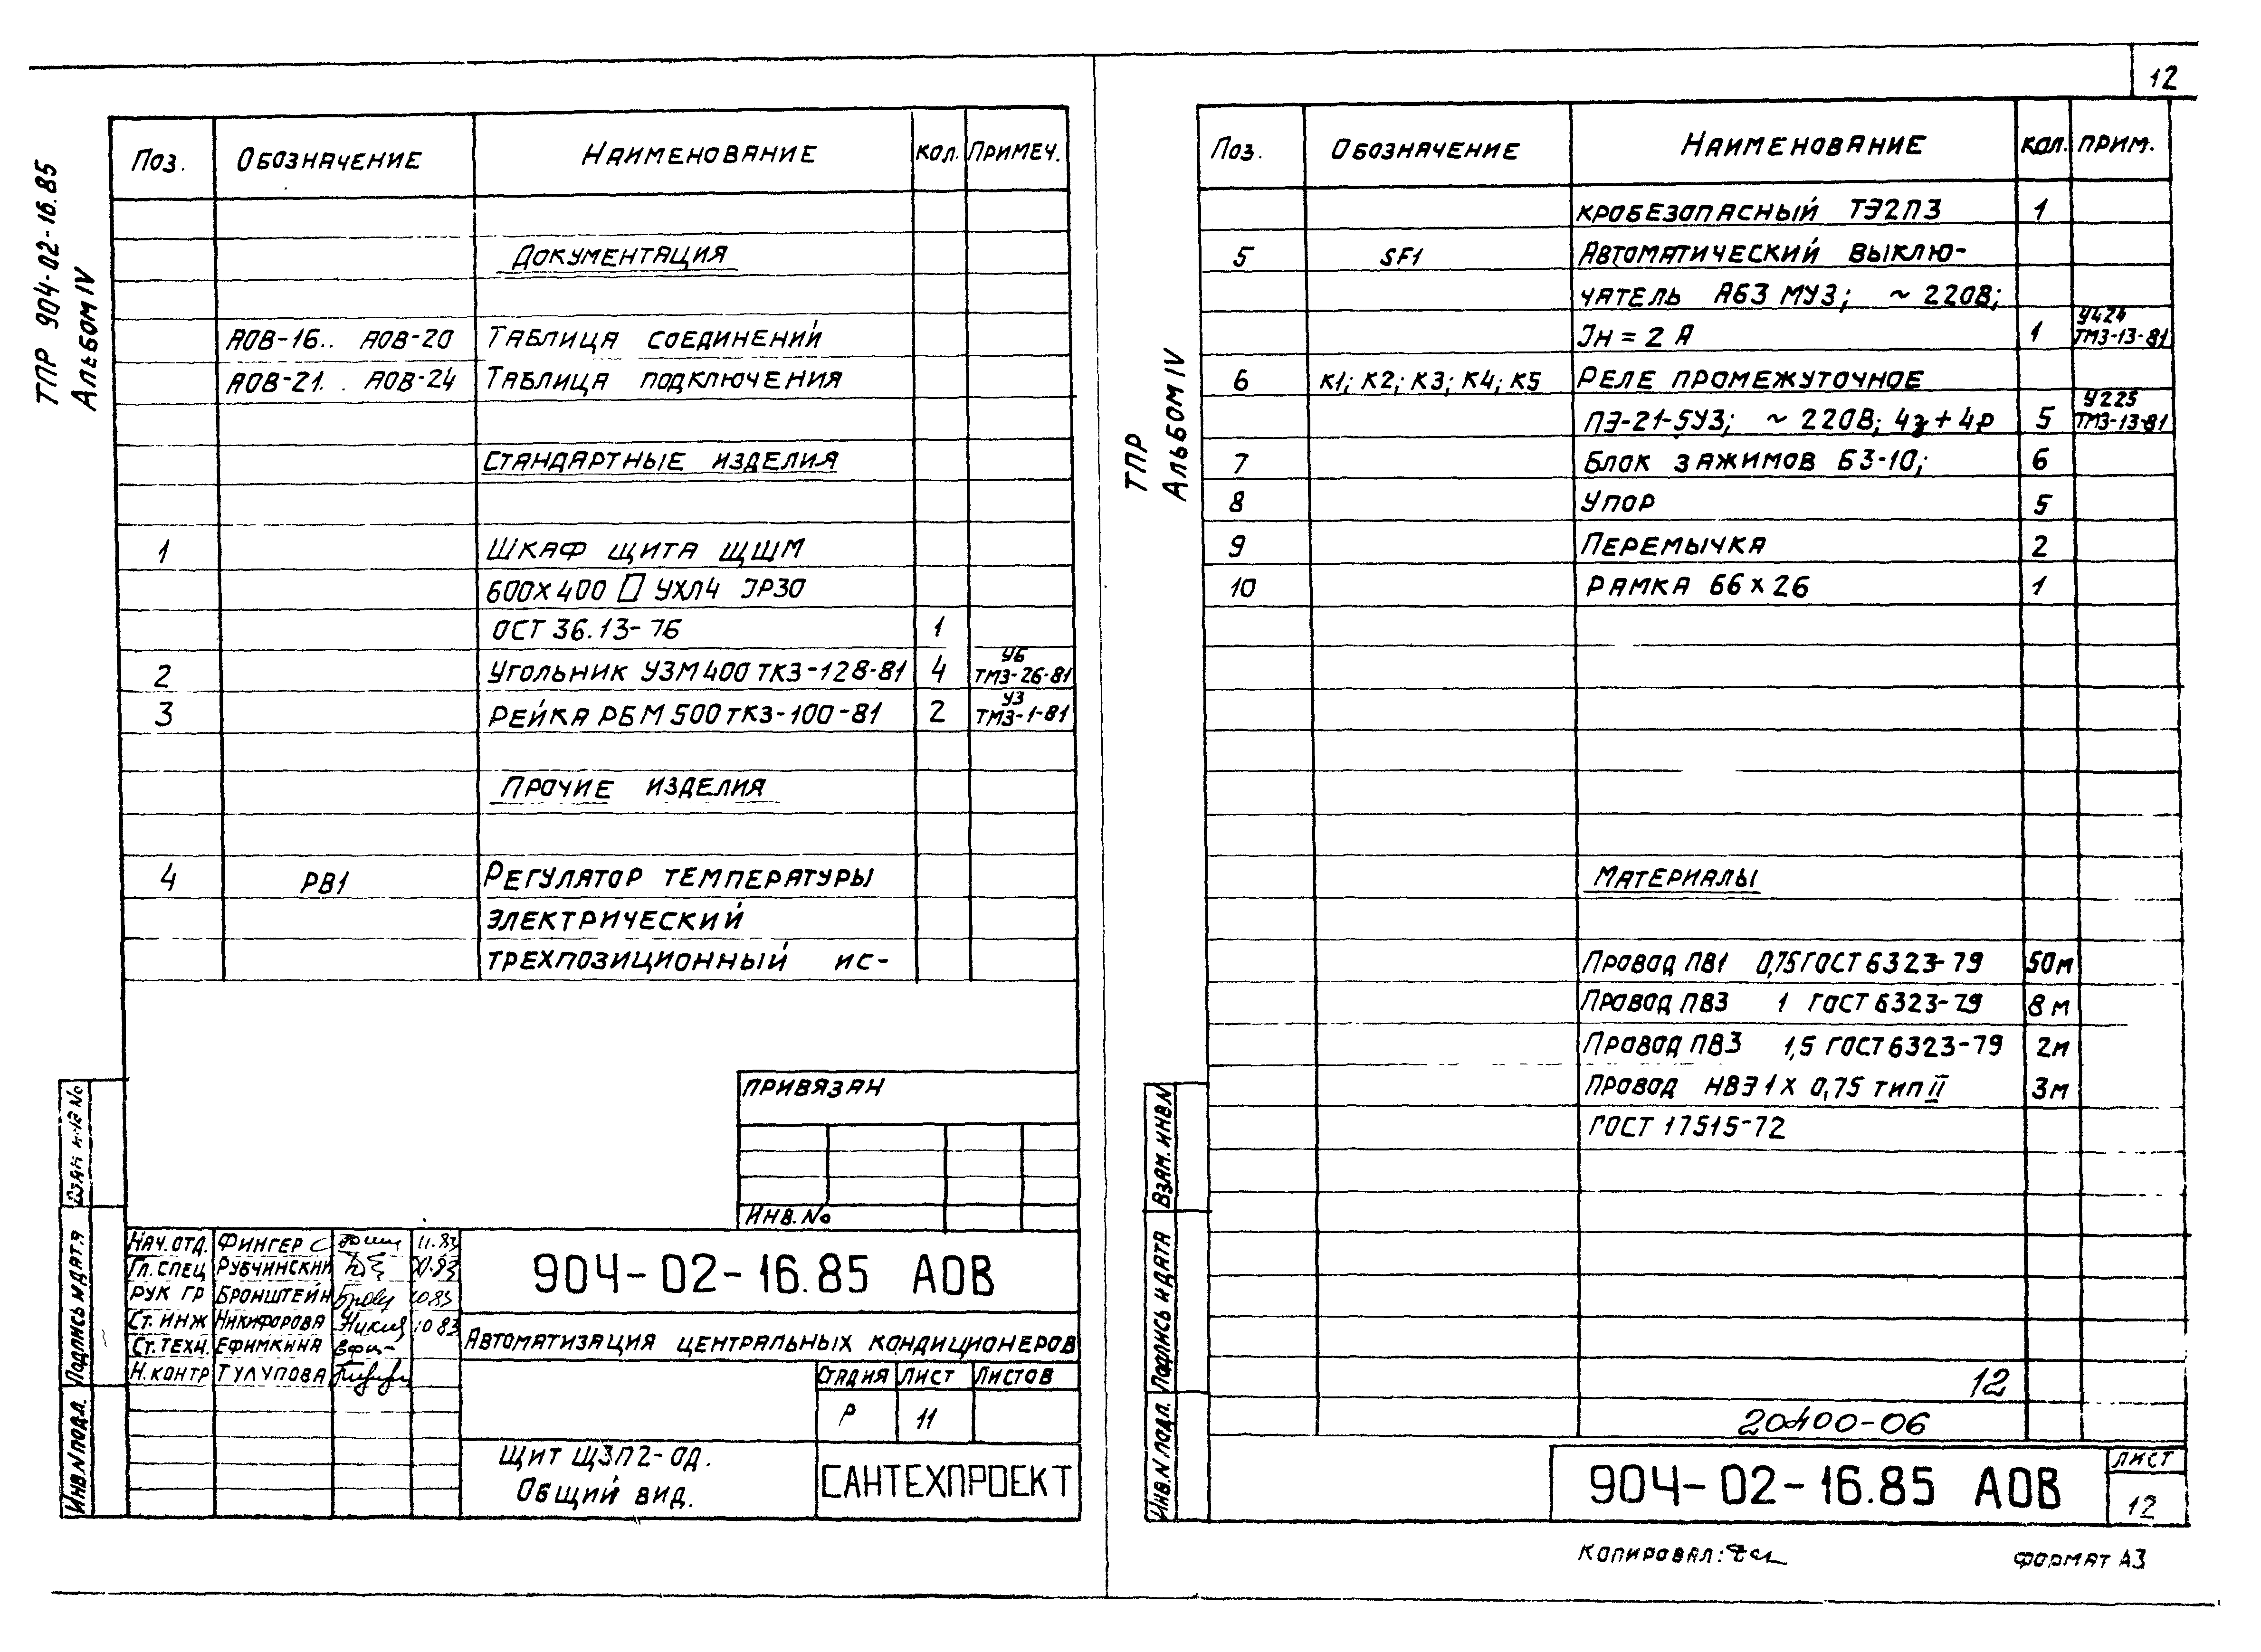 12
ТПР 904-02-16.85
Альбом IV
Поз. Обозначение Наименование Кол. Примеч.
Документация
АОВ-16.. АОВ-20 Таблица соединений
АОВ-21.. АОВ-24 Таблица подключения
Стандартные изделия
1 Шкаф щита ЩШМ
600х400 □ УХЛ4 IP30
ОСТ 36.13-76 1
2 Угольник УЗМ400 ТК3-128-81 4 У6 ТМ3-26-81
3 Рейка РБМ500 ТК3-100-81 2 У3 ТМ3-1-81
Прочие изделия
4 РВ1 Регулятор температуры
электрический
трехпозиционный ис-
Привязан
Инв.№
Взам инв №
Подпись и дата
Инв.N подл.
Нач.отд. Фингер 11.83
Гл.спец Рубчинский XI.83
Рук гр Бронштейн 10.83
Ст.инж Никифорова 10 83
Ст.техн. Ефимкина
Н.контр Тулупова
904-02-16.85 АОВ
Автоматизация центральных кондиционеров
Стадия Лист Листов
Р 11
Щит ЩЗП2-ОД.
Общий вид.
САНТЕХПРОЕКТ
ТПР
Альбом IV
Поз. Обозначение Наименование Кол. Прим.
кробезопасный ТЭ2П3 1
5 SF1 Автоматический выклю-
чатель А63 МУ3; ~ 220В;
Iн = 2 А 1 У424 ТМ3-13-81
6 К1; К2; К3; К4; К5 Реле промежуточное
ПЭ-21-5У3; ~ 220В; 4з + 4р 5 У225 ТМ3-13-81
7 Блок зажимов БЗ-10; 6
8 Упор 5
9 Перемычка 2
10 Рамка 66х26 1
Материалы
Провод ПВ1 0,75 ГОСТ 6323-79 50м
Провод ПВ3 1 ГОСТ 6323-79 8 м
Провод ПВ3 1,5 ГОСТ 6323-79 2м
Провод НВЭ 1х 0,75 тип II 3м
ГОСТ 17515-72
12
20400-06
Взам. инв.N
Подпись и дата
Инв.N подл.
904-02-16.85 АОВ
Лист
12
Копировал:
Формат А3